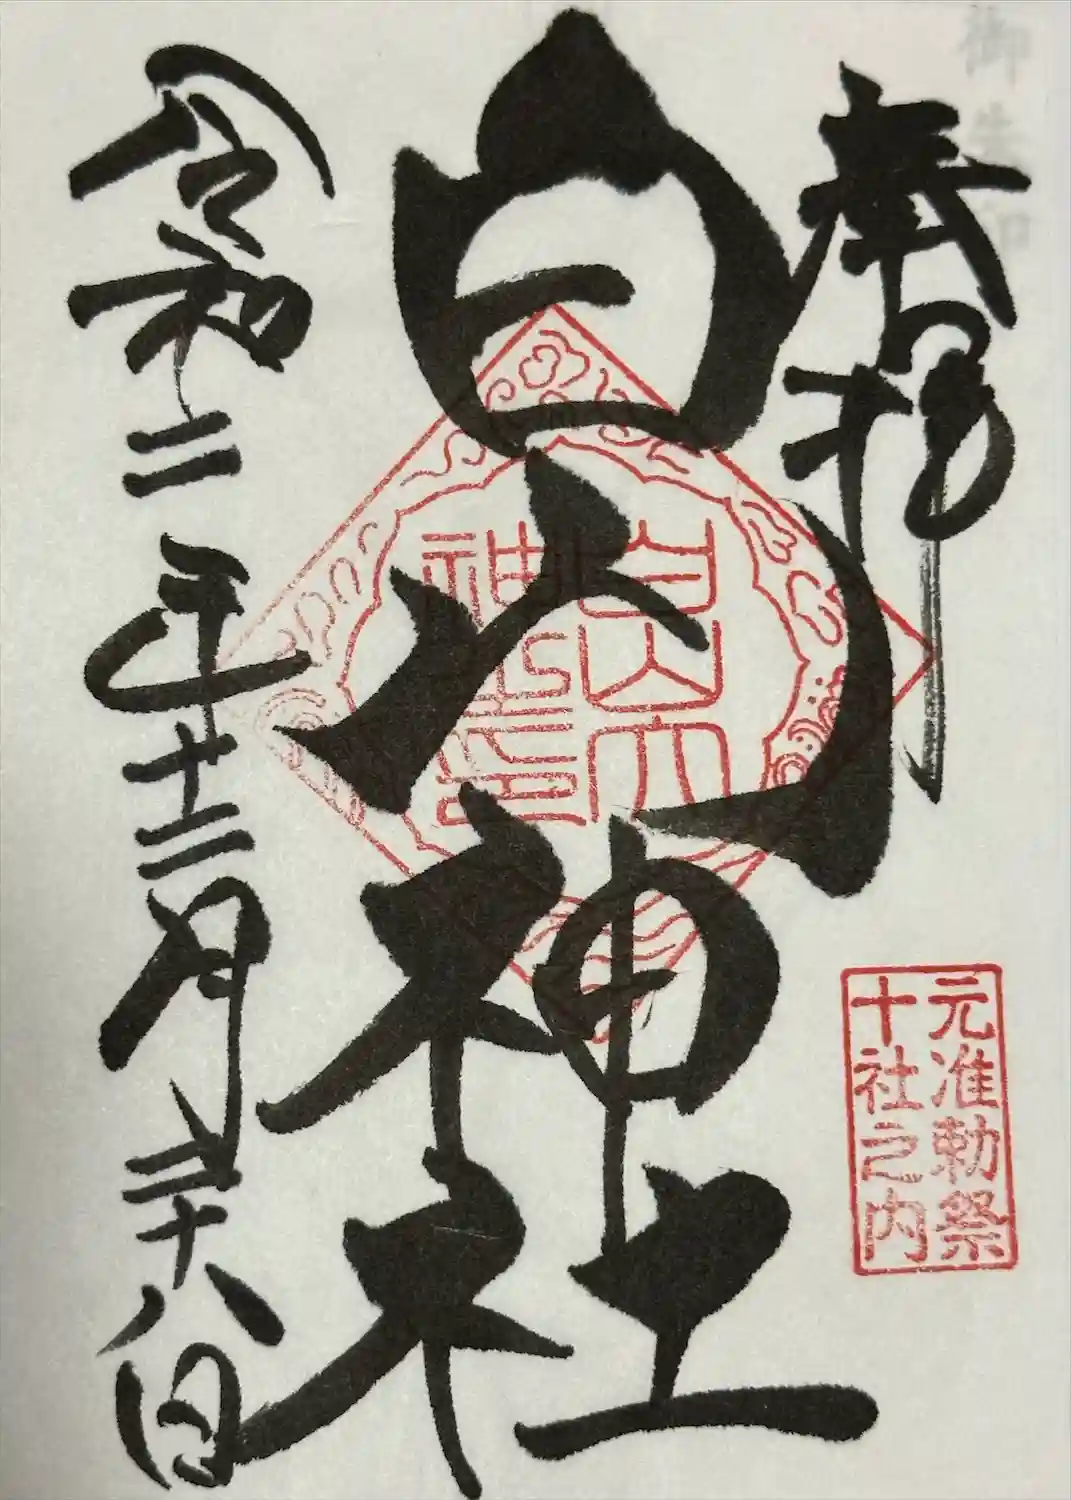 御朱印
奉拝
白山神社
令和二年十二月二十八日
元准勅祭
十社之内